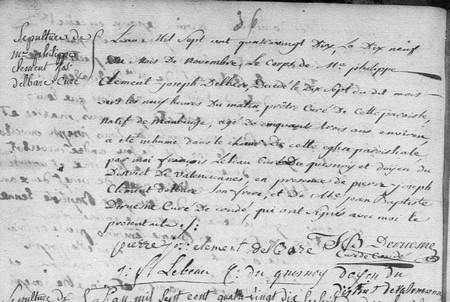 36
Sepulture de
Mre philippe
Clement Jos.
delbare Curé
L'an Mil Sept cent quatrevingt Dix, Le Dix neuf
du Mois de Novembre, Le Corps de Mre philippe
Clement joseph Delbare, Decedé le Dix Sept du dit mois
sur les neuf heures du matin prêtre Curé de Cette paroisse
natif de Maubeuge, agé de cinquante trois ans environ,
a eté inhumé dans le choeur de cette eglise paroissiale
par moi françois Lebeau Curé du quesnoy et doyen du
District de Valenciennes en presence de pierre joseph
Clement delbare Son frere, et de Mre Jean Baptiste
Deruesne Curé de condé qui ont signés avec moi le
present acte /:
pierre jos: clement delbare JB Deruesne
Curé de Condé
f: Lebeau C. du quesnoy doyen du
district de Valenciennes
Sepulture de L'an mil sept cent quatrevingt dix le